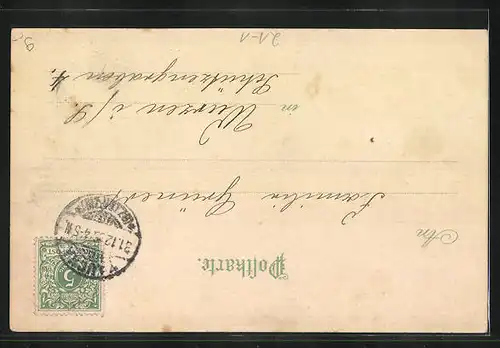 Postkarte.
An
Familie Grüner
in Wurzen i/S.
Schützengraben 4.
5
21-1